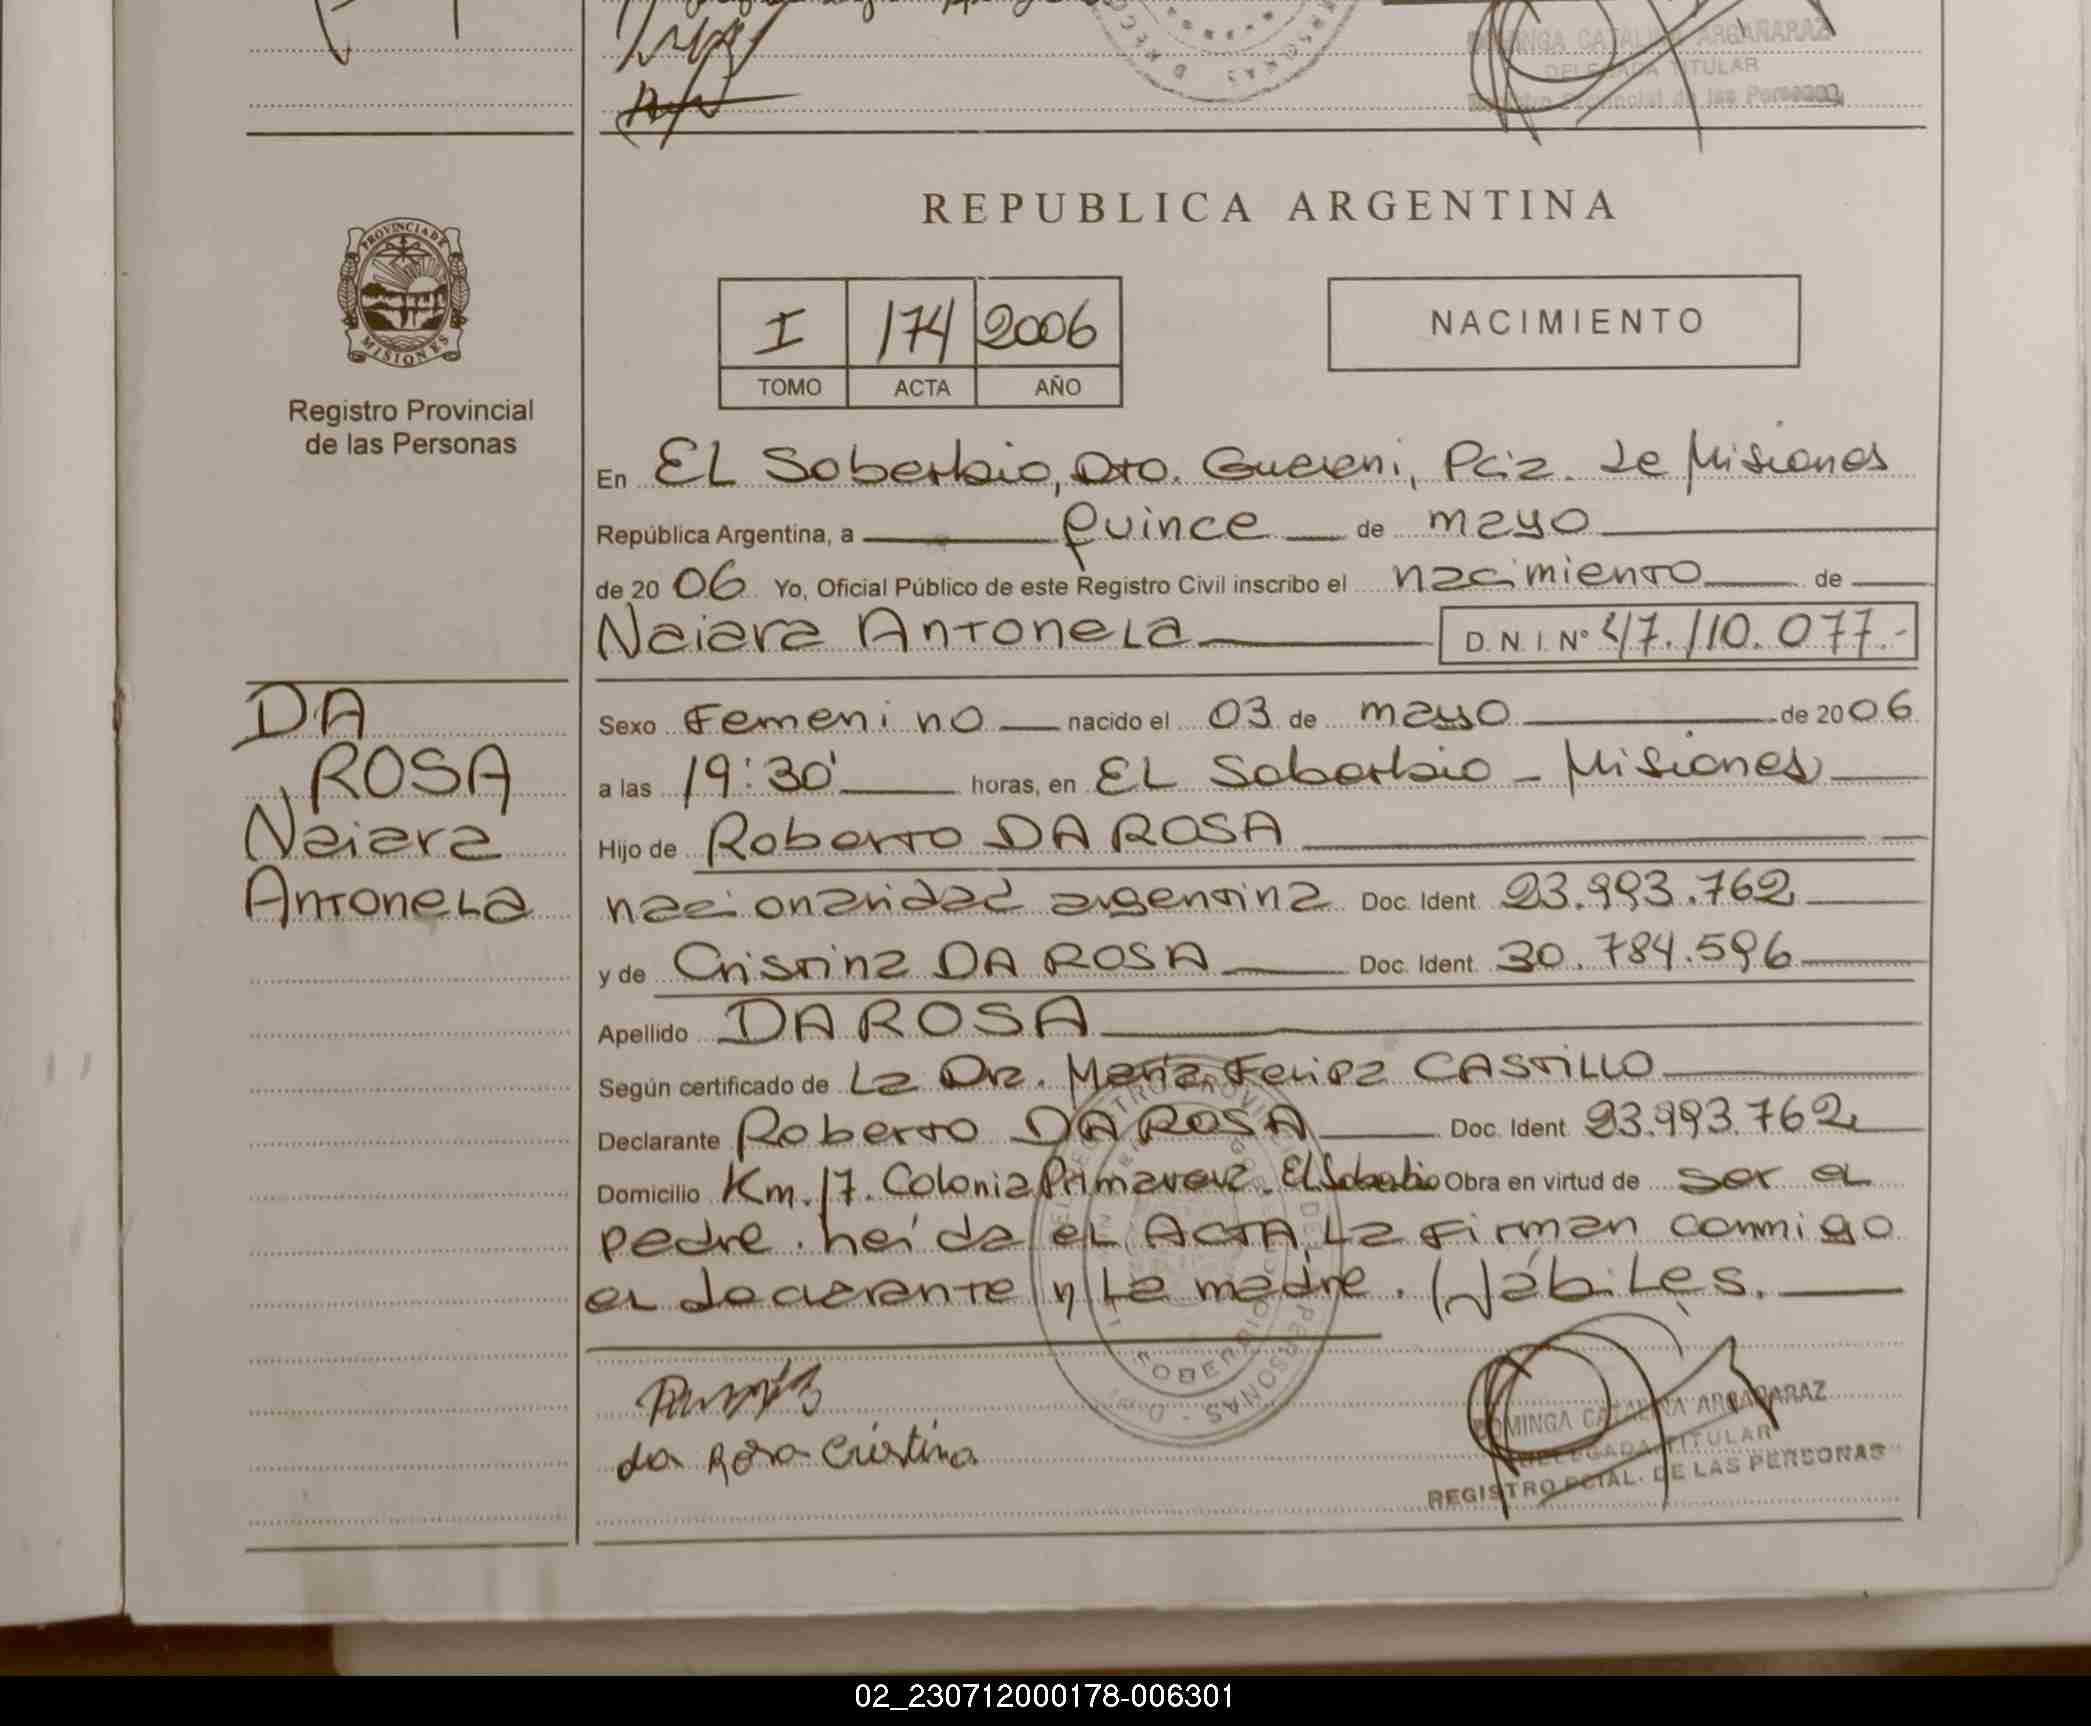 DOMINGA CATALINA ARGAÑARAZ
DELEGADA TITULAR
Registro Provincial de las Personas
PROVINCIA DE
MISIONES
Registro Provincial
de las Personas
REPUBLICA ARGENTINA
I 174 2006
TOMO ACTA AÑO
NACIMIENTO
En EL Soberbio, Dto. Guarani, Pcia. de Misiones
República Argentina, a quince de mayo
de 2006 Yo, Oficial Público de este Registro Civil inscribo el nacimiento de
Naiara Antonela D.N.I. Nº 47.110.077.-
DA
ROSA
Naiara
Antonela
Sexo Femenino nacido el 03 de mayo de 2006
a las 19:30' horas, en EL Soberbio - Misiones
Hijo de Roberto DA ROSA
nacionalidad argentina Doc. Ident. 23.993.762
y de Cristina DA ROSA Doc. Ident. 30.784.596
Apellido DA ROSA
Según certificado de La Dra. María Felipa CASTILLO
Declarante Roberto DA ROSA Doc. Ident. 23.993.762
Domicilio Km. 17. Colonia Primavera. El Soberbio Obra en virtud de ser el
padre. Leída el ACTA, La firman conmigo
el declarante y La madre. Hábiles.
da Rosa Cristina
DOMINGA CATALINA ARGAÑARAZ
DELEGADA TITULAR
REGISTRO PCIAL. DE LAS PERSONAS
02_230712000178-006301